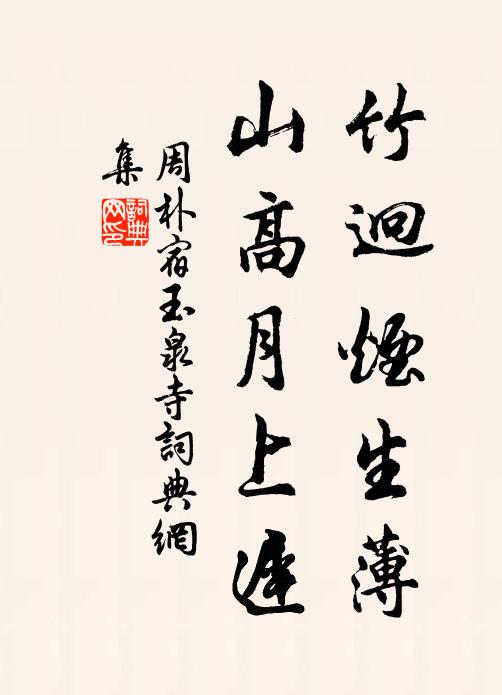 竹迥煙生薄
山高月上遲
周朴宿玉泉寺詞典網
集
詞典網